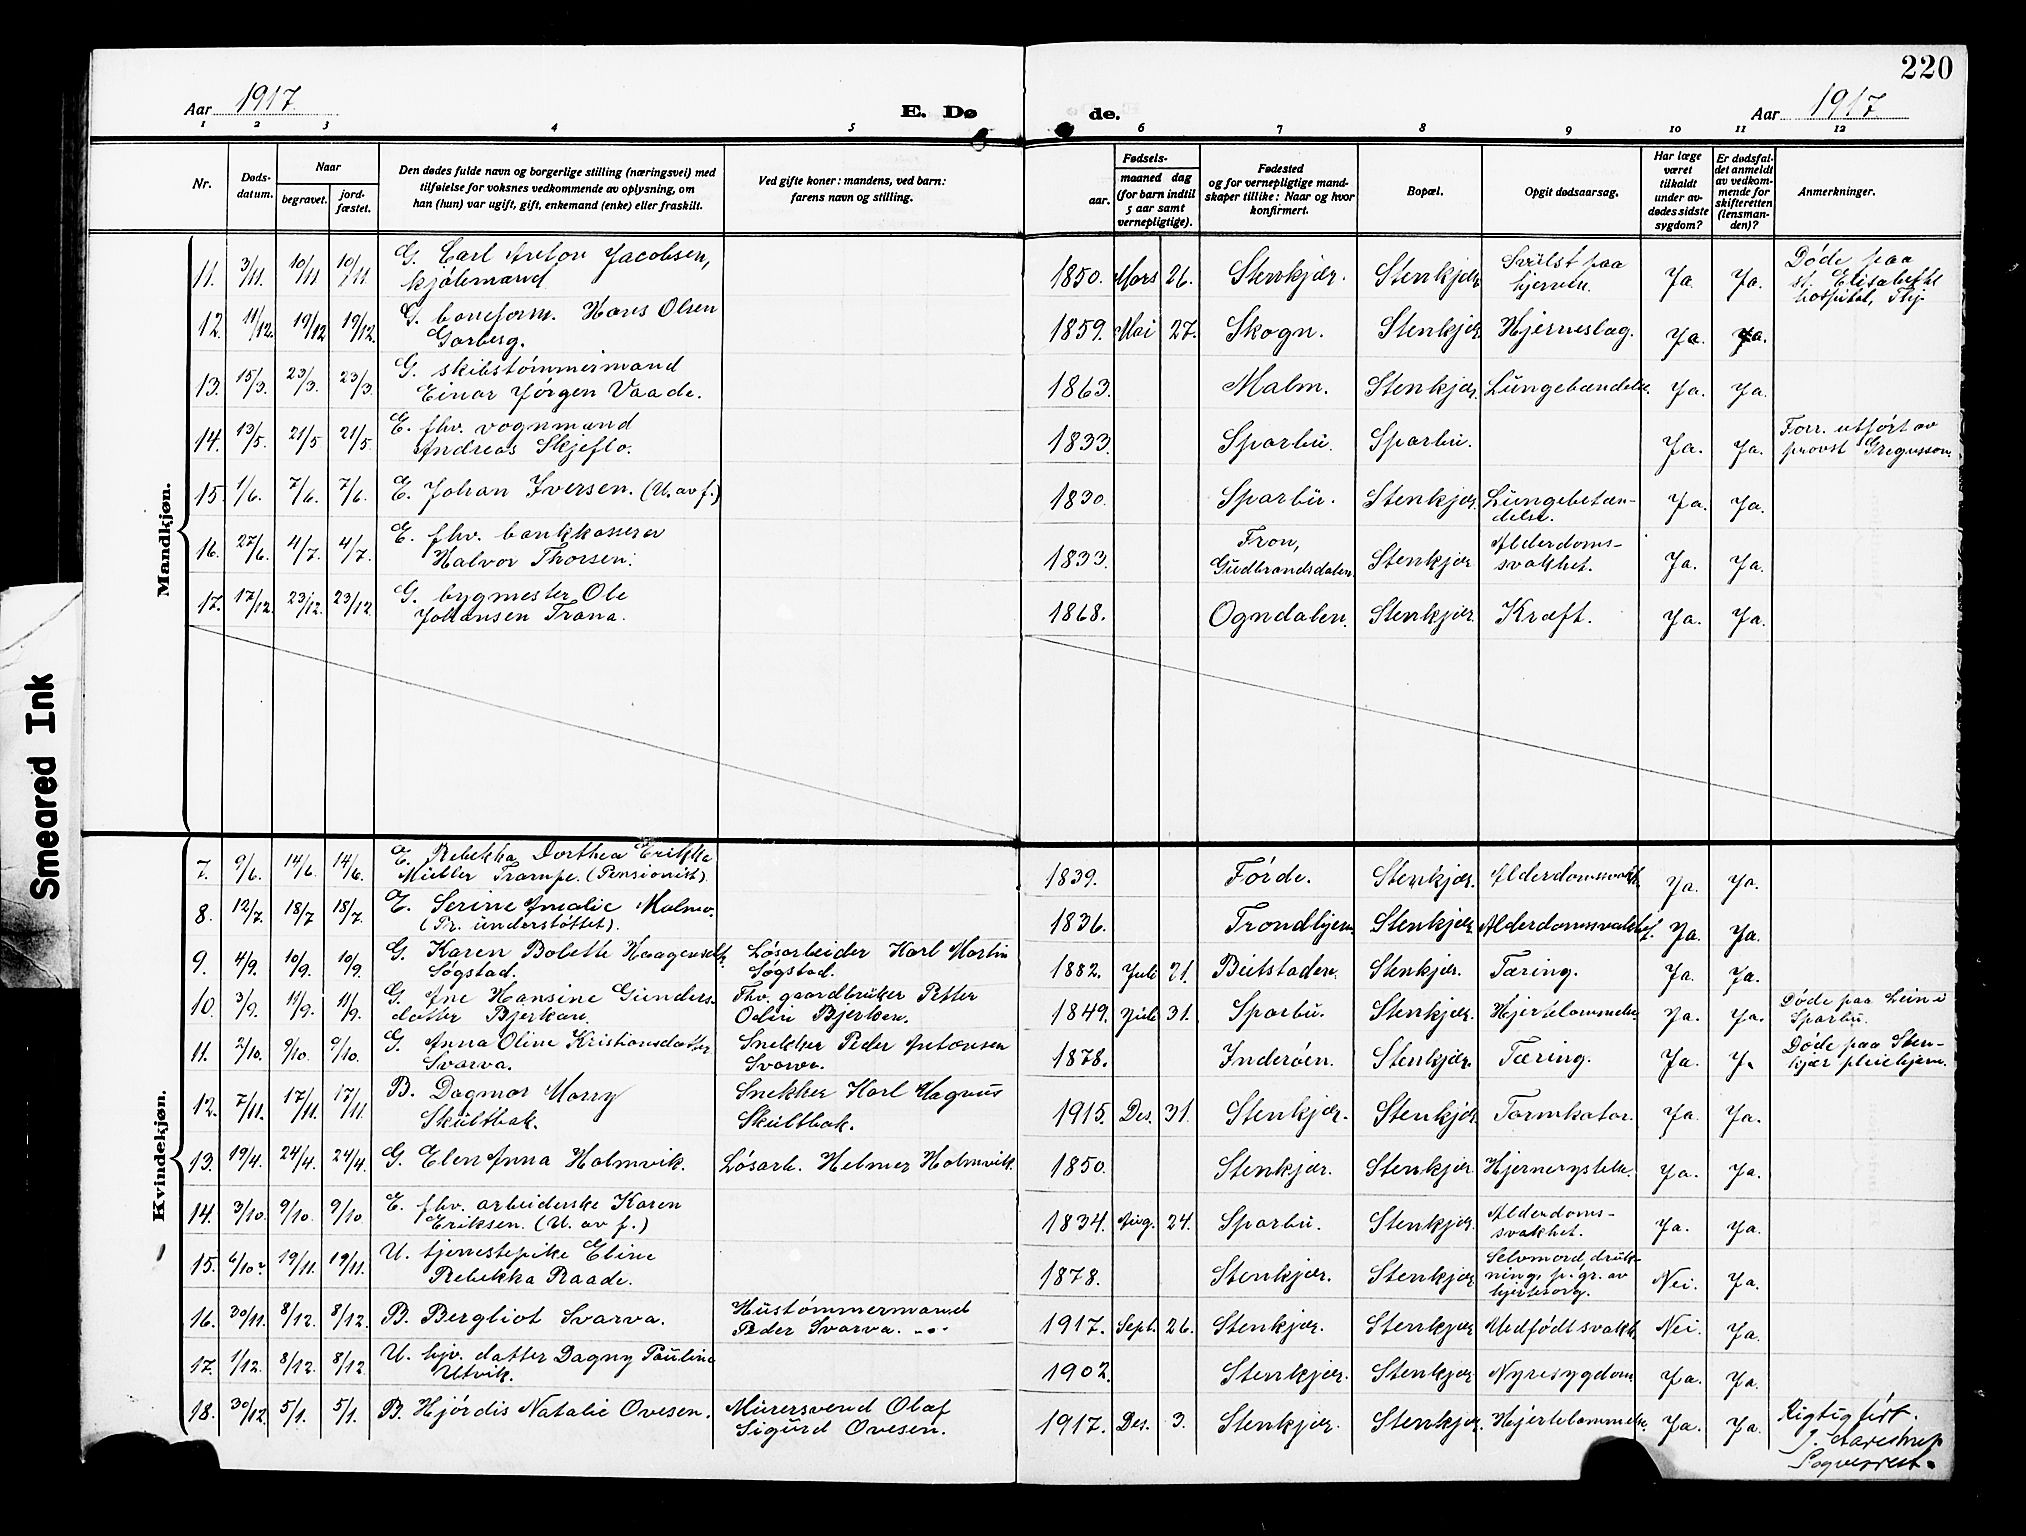 220
Aar 1917. E. Dø de. Aar 1917.
1 2 3 4 5 6 7 8 9 10 11 12
Nr.
Døds-
datum.
Naar
begravet.
jord-
fæstet.
Den dødes fulde navn og borgerlige stilling (næringsvei) med
tilføielse for voksnes vedkommende av oplysning, om
han (hun) var ugift, gift, enkemand (enke) eller fraskilt.
Ved gifte koner: mandens, ved barn:
farens navn og stilling.
Fødsels-
aar.
maaned dag
(for barn indtil
5 aar samt
vernepligtige).
Fødested
og for vernepligtige mand-
skaper tillike: Naar og hvor
konfirmert.
Bopæl.
Opgit dødsaarsag.
Har læge
været
tilkaldt
under av-
dødes sidste
sygdom?
Er dødsfal-
det anmeldt
av vedkom-
mende for
skifteretten
(lensman-
den)?
Anmerkninger.
Mandkjøn.
11. 3/11. 10/11 10/11 G. Carl Anton Jacobsen,
kjøbmand 1850. Mars 26. Stenkjær. Stenkjær Svulst paa
hjernen. Ja. Ja. Døde paa
st. Elisabeths
hospital, Thj.
12. 11/12. 19/12 19/12. G. baneform. Hans Olsen
Garberg. 1859. Mai 27. Skogn. Stenkjær. Hjerneslag. Ja. Ja.
13. 15/3. 23/3. 23/3 G. skibstømmermand
Einar Jørgen Vaade. 1863. Malm. Stenkjær. Lungebændelse. Ja. Ja.
14. 13/5. 21/5 21/5. E. fhv. vognmand
Andreas Skjeflo. 1833. Sparbu. Sparbu. Ja. Ja. Forr. utført av
provst Gregusson.
15. 1/6. 7/6. 7/6. E. Johan Iversen. (U. av f.) 1830. Sparbu. Stenkjær. Lungebetæn-
delse. Ja. Ja.
16. 27/6. 4/7. 4/7. E. fhv. bankkasserer
Halvor Thorsen. 1833. Fron,
Gudbrandsdalen. Stenkjær Alderdoms-
svakhet. Ja. Ja.
17. 17/12. 23/12. 23/12. G. bygmester Ole
Johansen Trana. 1868. Ogndalen. Stenkjær. Kræft. Ja. Ja.
Kvindekjøn.
7. 9/6. 14/6. 14/6. E. Rebekka Dorthea Erikka
Müller Trampe. (Pensionist). 1839. Førde. Stenkjær. Alderdomssvakh. Ja. Ja.
8. 12/7. 18/7 18/7. E. Serine Amalie Malmo.
(Pr. understøttet). 1836. Trondhjem Stenkjær. Alderdomssvakhet. Ja. Ja.
9. 4/9. 10/9. 10/9. G. Karen Bolette Haagensdtr.
Søgstad. Løsarbeider Karl Martin
Søgstad. 1882. Juli 21. Beitstaden. Stenkjær. Tæring. Ja. Ja.
10. 3/9. 11/9. 11/9. G. Ane Hansine Gunders-
datter Bjerkan. Fhv. gaardbruker Petter
Odin Bjerken. 1849. Juli 31. Sparbu. Stenkjær. Hjertelammelse. Ja. Ja. Døde paa Lein i
Sparbu.
11. 2/10. 9/10. 9/10. G. Anna Oline Kristiansdatter
Svarva. Snekker Peder Antonsen
Svarva. 1878. Inderøen. Stenkjær. Tæring. Ja. J. Døde paa Sten-
kjær pleiehjem.
12. 7/11. 17/11. 17/11. B. Dagmar Marry
Skultbak. Snekker Karl Magnus
Skultbak. 1915. Des. 31. Stenkjær. Stenkjær Tarmkatar. Ja. Ja.
13. 19/4. 24/4. 24/4. G. Elen Anna Holmvik. Løsarb. Helmer Holmvik. 1850. Stenkjær. Stenkjær Hjernerystelse. Ja. Ja.
14. 3/10. 9/10. 9/10. E. fhv. arbeiderske Karen
Eriksen. (U. av f.) 1834. Aug. 24. Sparbu. Stenkjær. Alderdoms-
svakhet. Ja. Ja.
15. 6/10? 19/11. 19/11. U. tjenestepike Eline
Rebekka Raade. 1878. Stenkjær. Stenkjær Selvmord, druk-
ning, p. gr. av
hjertesorg. Nei. Ja.
16. 30/11. 8/12. 8/12. B. Bergliot Svarva. Hustømmermand
Peder Svarva. 1917. Sept. 26. Stenkjær. Stenkjær Medfødt svakh. Nei. Ja.
17. 1/12. 8/12. 8/12 U. hjv. datter Dagny Pauline
Utvik. 1902. Stenkjær. Stenkjær. Nyresygdom. Ja. Ja.
18. 30/12. 5/1. 5/1. B. Hjørdis Natalie Ovesen. Murersvend Olaf
Sigurd Ovesen. 1917. Des. 3. Stenkjær. Stenkjær. Hjertelammelse. Ja. Ja. Rigtig ført.
Sogneprest.
Smeared Ink